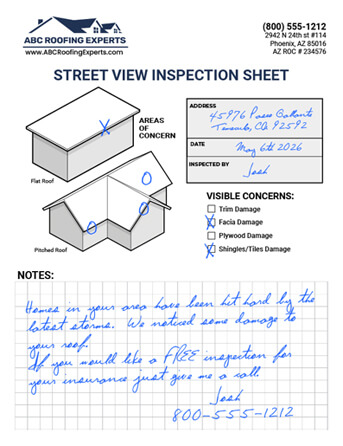 ABC ROOFING EXPERTS
www.ABCRoofingExperts.com
(800) 555-1212
2942 N 24th st #114
Phoenix, AZ 85016
AZ ROC # 234576
STREET VIEW INSPECTION SHEET
AREAS
OF
CONCERN
Flat Roof
Pitched Roof
ADDRESS
45976 Paseo Gallante
Temecula, CA 92592
DATE
May 6th 2026
INSPECTED BY
Josh
VISIBLE CONCERNS:
Trim Damage
X Facia Damage
Plywood Damage
X Shingles/Tiles Damage
NOTES:
Homes in your area have been hit hard by the
latest storms. We noticed some damage to
your roof.
If you would like a FREE inspection for
your insurance just give me a call.
Josh
800-555-1212